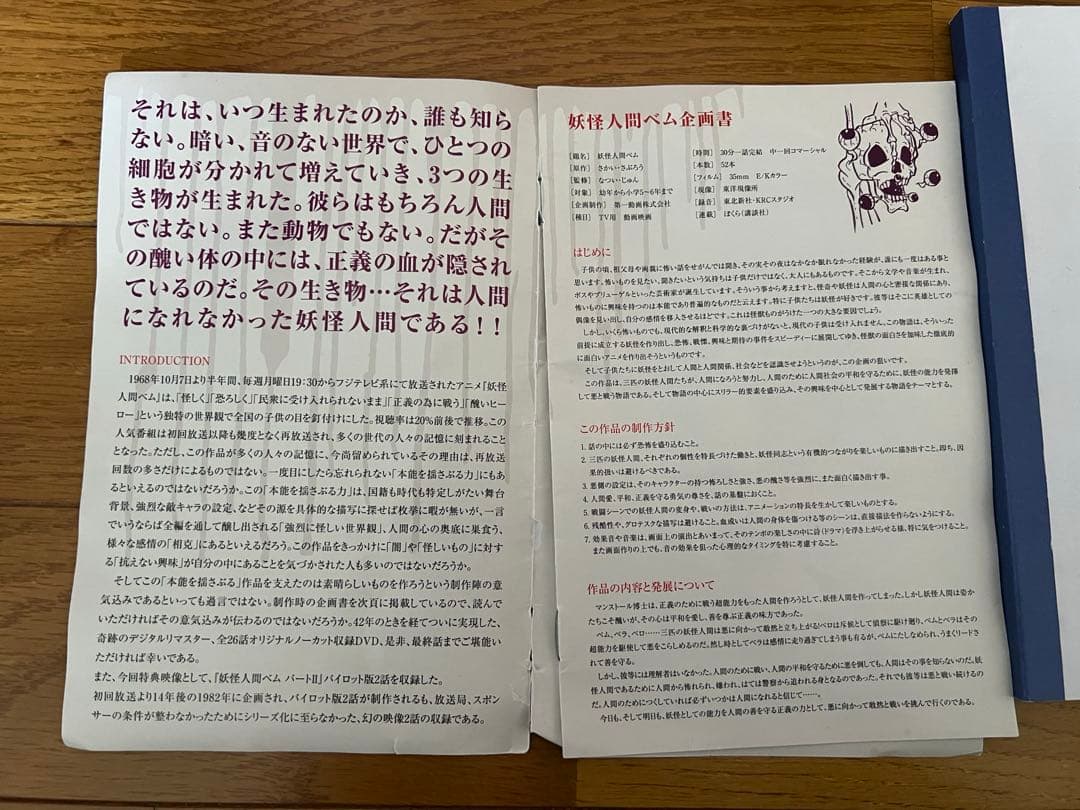 それは、いつ生まれたのか、誰も知ら
ない。暗い、音のない世界で、ひとつの
細胞が分かれて増えていき、3つの生
き物が生まれた。彼らはもちろん人間
ではない。また動物でもない。だがそ
の醜い体の中には、正義の血が隠され
ているのだ。その生き物…それは人間
になれなかった妖怪人間である!!
INTRODUCTION
1968年10月7日より半年間、毎週月曜日19:30からフジテレビ系にて放送されたアニメ「妖怪
人間ベム」は、「怪しく」「恐ろしく」「民衆に受け入れられないまま」「正義の為に戦う」「醜いヒー
ロー」という独特の世界観で全国の子供の目を釘付けにした。視聴率は20%前後で推移。この
人気番組は初回放送以降も幾度となく再放送され、多くの世代の人々の記憶に刻まれること
となった。ただし、この作品が多くの人々の記憶に、今尚留められているその理由は、再放送
回数の多さだけによるものではない。一度目にしたら忘れられない「本能を揺さぶる力」にもあ
るといえるのではないだろうか。この「本能を揺さぶる力」は、国籍も時代も特定しがたい舞台
背景、強烈な敵キャラの設定、などその源を具体的な描写に探せば枚挙に暇が無いが、一言
でいうならば全編を通して醸し出される「強烈に怪しい世界観」、人間の心の奥底に巣食う、
様々な感情の「相克」にあるといえるだろう。この作品をきっかけに「闇」や「怪しいもの」に対す
る「抗えない興味」が自分の中にあることを気づかされた人も多いのではないだろうか。
そしてこの「本能を揺さぶる」作品を支えたのは素晴らしいものを作ろうという制作陣の意
気込みであるといっても過言ではない。制作時の企画書を次頁に掲載しているので、読んで
いただければその意気込みが伝わるのではないだろうか。42年のときを経てついに実現した、
奇跡のデジタルリマスター、全26話オリジナルノーカット収録DVD、是非、最終話までご堪能い
ただければ幸いである。
また、今回特典映像として、「妖怪人間ベム パートII」パイロット版2話を収録した。
初回放送より14年後の1982年に企画され、パイロット版2話が制作されるも、放送局、スポン
サーの条件が整わなかったためにシリーズ化に至らなかった、幻の映像2話の収録である。
妖怪人間ベム企画書
[題名] 妖怪人間ベム
[原作] さかい・さぶろう
[監修] なつい・じゅん
[対象] 幼年から小学5~6年まで
[企画制作] 第一動画株式会社
[種目] TV用 動画映画
[時間] 30分一話完結 中一回コマーシャル
[本数] 52本
[フィルム] 35mm E/Kカラー
[現像] 東洋現像所
[録音] 東北新社・KRCスタジオ
[連載] ぼくら(講談社)
はじめに
子供の頃、祖父母や両親に怖い話をせがんでは聞き、その実その夜はなかなか眠れなかった経験が、誰にも一度はある事と
思います。怖いものを見たい、聞きたいという気持ちは子供だけではなく、大人にもあるものです。そこから文学や音楽が生まれ、
ボスやブリューゲルといった芸術家が誕生しています。そういう事から考えますと、怪奇や妖怪は人間の心と密接な関係にあり、
怖いものに興味を持つのは本能であり普遍的なものだと言えます。特に子供たちは妖怪が好きです。彼等はそこに英雄としての
偶像を見い出し、自分の感情を移入させるほどです。これは怪獣ものがうけた一つの大きな要因でしょう。
しかし、いくら怖いものでも、現代的な解釈と科学的な裏づけがないと、現代の子供は受け入れません。この物語は、そういった
前提に成立する妖怪を作り出し、恐怖、戦慄、興味と期待の事件をスピーディーに展開してゆき、怪獣の面白さを加味した徹底的
に面白いアニメを作り出そうというものです。
そして子供たちに妖怪をとおして人間と人間関係、社会などを認識させようというのが、この企画の狙いです。
この作品は、三匹の妖怪人間たちが、人間になろうと努力し、人間のために人間社会の平和を守るために、妖怪の能力を発揮
して悪と戦う物語である。そして物語の中心にスリラー的要素を盛り込み、その興味を中心として発展する物語をテーマとする。
この作品の制作方針
1. 話の中には必ず恐怖を盛り込むこと。
2. 三匹の妖怪人間、それぞれの個性を特長づけた働きと、妖怪同志という有機的つながりを楽しいものに描き出すこと。即ち、因
果的扱いは避けるべきである。
3. 悪側の設定は、そのキャラクターの持つ怖ろしさと強さ、悪の醜さ等を強烈に、また面白く描き出す事。
4. 人間愛、平和、正義を守る勇気の尊さを、話の基盤におくこと。
5. 戦闘シーンでの妖怪人間の変身や、戦いの方法は、アニメーションの特長を生かして楽しいものとする。
6. 残酷性や、グロテスクな描写は避けること。血或いは人間の身体を傷つける等のシーンは、直接描法を作らないようにする。
7. 効果音や音楽は、画面上の演出とあいまって、そのテンポの楽しさの中に詩(ドラマ)を浮き上がらせる様、特に気をつけること。
また画面作りの上でも、音の効果を狙った心理的なタイミングを特に考慮すること。
作品の内容と発展について
マンストール博士は、正義のために戦う超能力をもった人間を作ろうとして、妖怪人間を作ってしまった。しかし妖怪人間は姿か
たちこそ醜いが、その心は平和を愛し、善を尊ぶ正義の味方であった。
ベム、ベラ、ベロ……三匹の妖怪人間は悪に向かって敢然と立ち上がる!ベロは斥候として偵察に駆け廻り、ベムとベラはその
超能力を駆使して悪をこらしめるのだ。然し時としてベラは感情に走り過ぎてしまう事も有るが、ベムにたしなめられ、うまくリードさ
れて善を守る。
しかし、彼等には理解者はいなかった。人間のために戦い、人間の平和を守るために悪を倒しても、人間はその事を知らないのだ。妖
怪人間であるために人間から怖れられ、嫌われ、はては警察から追われる身となるのであった。それでも彼等は悪と戦い続けるの
だ。人間のためにつくしていれば必ずいつかは人間になれると信じて……。
今日も、そして明日も、妖怪としての能力を人間の善を守る正義の力として、悪に向かって敢然と戦いを挑んで行くのである。